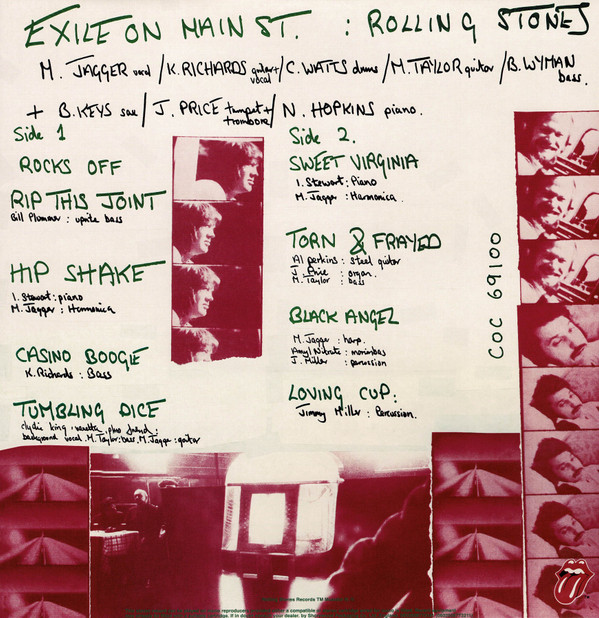 EXILE ON MAIN ST. : ROLLING STONES
M. JAGGER vocal / K. RICHARDS guitar + vocal / C. WATTS drums / M. TAYLOR guitar / B. WYMAN bass.
+ B. KEYS sax / J. PRICE trumpet + trombone / N. HOPKINS piano.
Side 1
ROCKS OFF
RIP THIS JOINT
Bill Plummer : uprite bass
HIP SHAKE
I. Stewart : piano
M. Jagger : Harmonica
CASINO BOOGIE
K. Richards : Bass
TUMBLING DICE
clydie king . vanetta . plus friend :
background vocal . M. Taylor : bass . M. Jagger : guitar
Side 2.
SWEET VIRGINIA
I. Stewart : Piano
M. Jagger : Harmonica .
TORN & FRAYED
Al perkins : steel guitar
J. Price : organ.
M. Taylor : bass
BLACK ANGEL
M. Jagger : harp.
Amyl Nitrate : marimbas
J. Miller : percussion
LOVING CUP :
Jimmy Miller : Percussion.
COC 69100